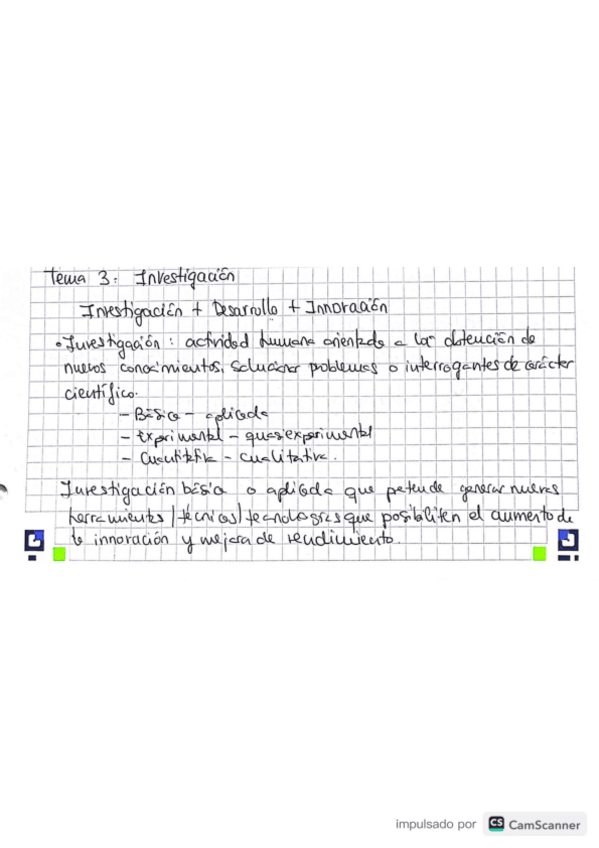 Tema 3: Investigación
Investigación + Desarrollo + Innovación
• Investigación: actividad humana orientada a la obtención de
nuevos conocimientos, solucionar problemas o interrogantes de carácter
científico.
- Básica - aplicada
- Experimental - quasiexperimental
- Cuantitativa - cualitativa.
Investigación básica o aplicada que pretende generar nuevas
herramientas / técnicas / tecnologías que posibiliten el aumento de
la innovación y mejora de rendimiento.
impulsado por CS CamScanner